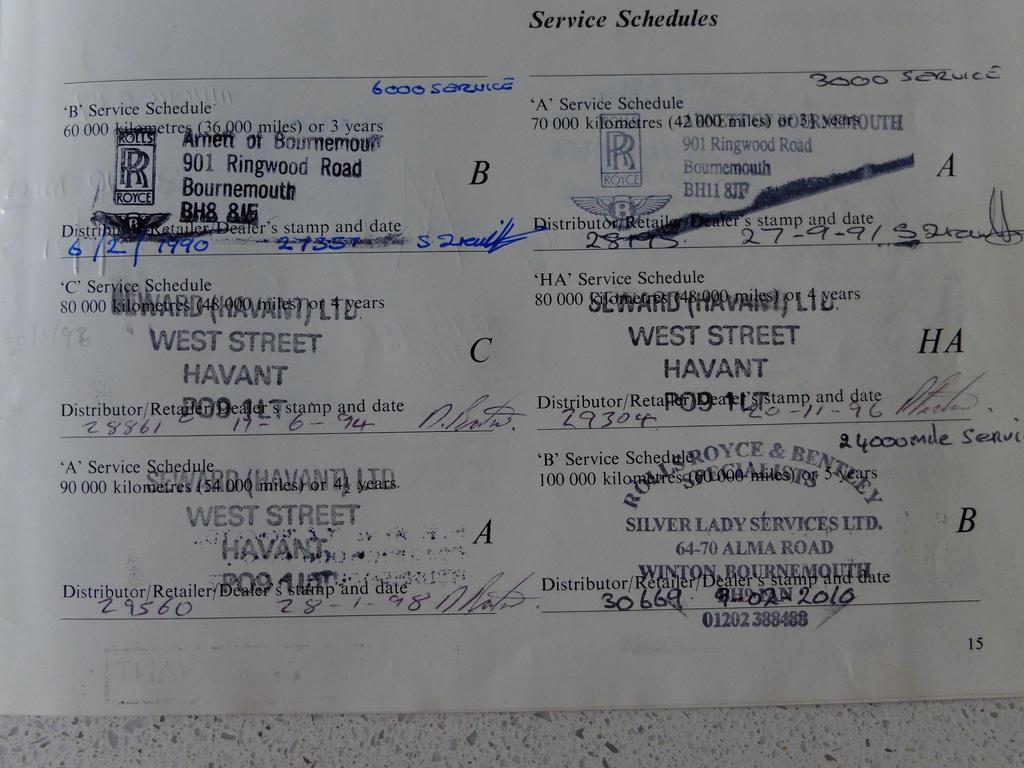 Service Schedules
6000 SERVICE
'B' Service Schedule
60 000 kilometres (36 000 miles) or 3 years
ROLLS
RR
ROYCE
Arnett of Bournemouth
901 Ringwood Road
Bournemouth
BH8 8JF
B
Distributor/Retailer/Dealer's stamp and date
6/2/1990
3000 SERVICE
'A' Service Schedule
70 000 kilometres (42 000 miles) or 3½ years
RR
ROYCE
B
ARNETT OF BOURNEMOUTH
901 Ringwood Road
Bournemouth
BH11 8JF
A
Distributor/Retailer/Dealer's stamp and date
27-9-91
'C' Service Schedule
80 000 kilometres (48 000 miles) or 4 years
SEWARD (HAVANT) LTD.
WEST STREET
HAVANT
PO9 1LT
C
Distributor/Retailer/Dealer's stamp and date
28861 17-6-94
'HA' Service Schedule
80 000 kilometres (48 000 miles) or 4 years
SEWARD (HAVANT) LTD.
WEST STREET
HAVANT
PO9 1LT
HA
Distributor/Retailer/Dealer's stamp and date
29304 20-11-96
'A' Service Schedule
90 000 kilometres (54 000 miles) or 4½ years.
SEWARD (HAVANT) LTD
WEST STREET
HAVANT
PO9 1LT
A
Distributor/Retailer/Dealer's stamp and date
29560 28-1-98
24000 mile Servi
'B' Service Schedule
100 000 kilometres (60 000 miles) or 5 years
ROLLS ROYCE & BENTLEY
SPECIALISTS
SILVER LADY SERVICES LTD.
64-70 ALMA ROAD
WINTON, BOURNEMOUTH
B
Distributor/Retailer/Dealer's stamp and date
30669 9-02-2010
01202 388488
15